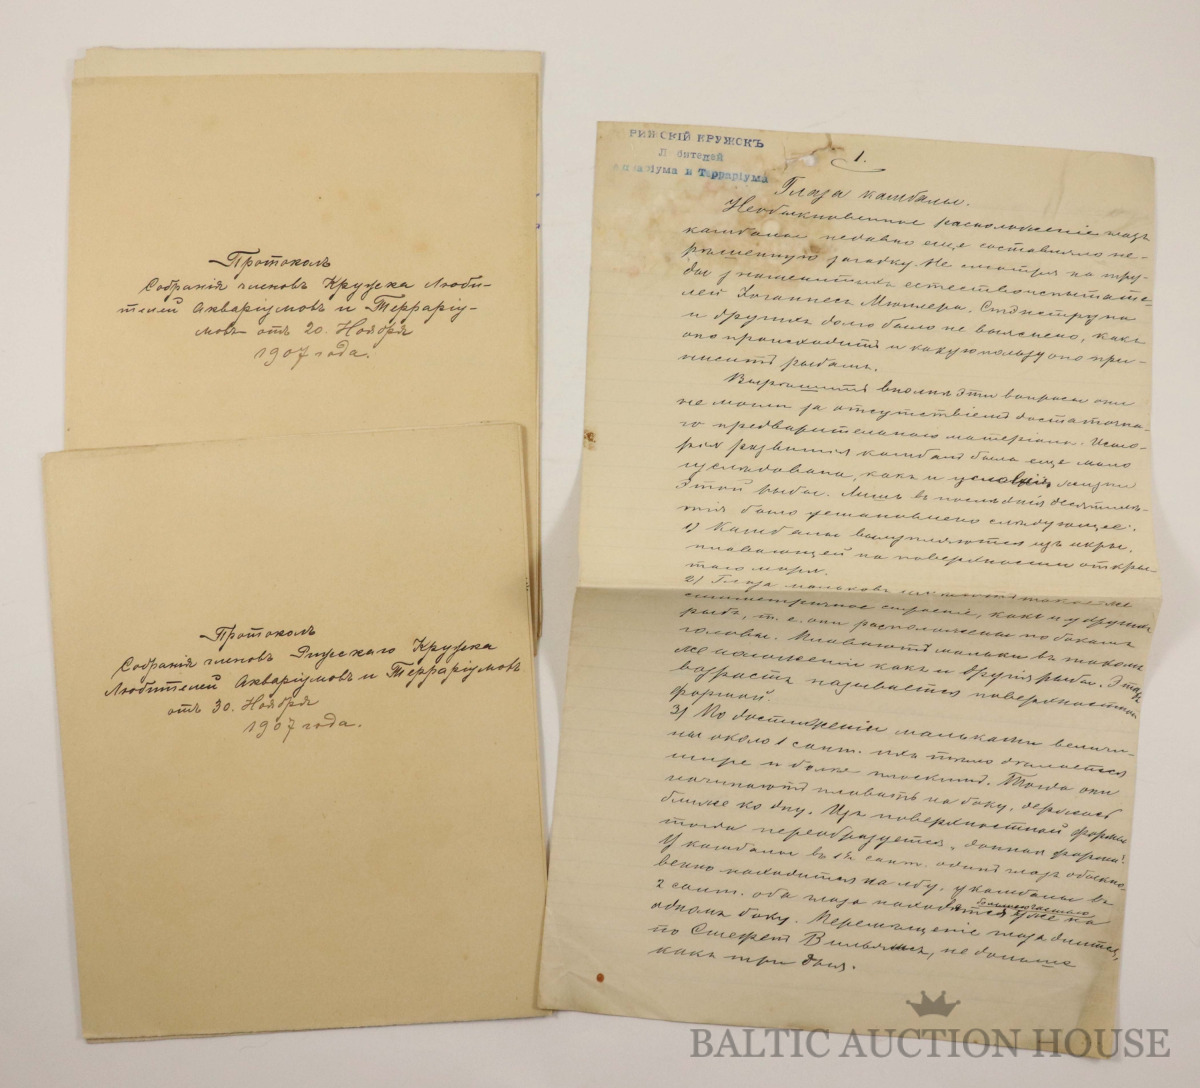 Протоколъ
Собранія членовъ Кружка Люби-
телей Акваріумовъ и Террарiу-
мовъ отъ 20. Ноября
1907 года.
Протоколъ
Собранія членовъ Рижскаго Кружка
Любителей Акваріумовъ и Террарiумовъ
отъ 30. Ноября
1907 года.
РИЖСКІЙ КРУЖОКЪ
Любителей
Акваріума и Террарiума
1.
Глаза камбалы.
Необыкновенное расположеніе глазъ
камбалы недавно еще составляло не-
рѣшенную загадку. Не смотря на тру-
ды знаменитыхъ естествоиспытате-
лей Іоганнеса Мюллера, Стэнструпа
и другихъ долго было не выяснено, какъ
оно происходитъ и какую пользу оно при-
носитъ рыбамъ.
Вырѣшить вполнѣ эти вопросы они
не могли за отсутствіемъ достаточна-
го предварительнаго матеріала. Исто-
рія развитія камбалъ была еще мало
изслѣдована, какъ и условія жизни
этой рыбы. Лишь въ послѣднія десятилѣ-
тія было установлено слѣдующее:
1) Камбалы вылупляются изъ икры,
плавающей на поверхности откры-
таго моря.
2) Глаза мальковъ имѣютъ такое же
симметричное строеніе, какъ и у другихъ
рыбъ, т. е. они расположены по бокамъ
головы. Плаваютъ мальки въ такомъ
же положеніи какъ и другія рыбы. Этотъ
возрастъ называется поверхностной
формой.
3) По достиженіи мальками величи-
ны около 1 сант. ихъ тѣло дѣлается
шире и болѣе плоскимъ. Тогда они
начинаютъ плавать на боку, держась
ближе ко дну. Изъ поверхностной формы
тогда переобразуется "донная форма".
У камбалы въ 1½ сант. одинъ глазъ обыкно-
венно находится на лбу, у камбалы въ
2 сант. оба глаза находятся уже на
большею частью
одномъ боку. Перемѣщеніе глаза длится,
по Вильямсъ, не дольше
какъ три дня.
BALTIC AUCTION HOUSE